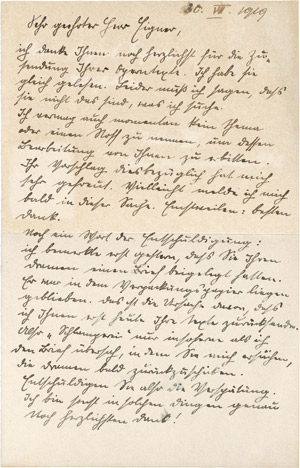 30. VI. 1919
Sehr geehrter Herr Eigner,
ich danke Ihnen noch herzlichst für die Zu-
sendung Ihrer Operntexte. Ich habe sie
gleich gelesen. Leider muß ich sagen, daß
sie nicht das sind, was ich suche.
Ich vermag auch momentan kein Thema
oder einen Stoff zu nennen, um dessen
Bearbeitung von Ihnen zu erbitten.
Ihr Vorschlag diesbezüglich hat mich
sehr gefreut. Vielleicht melde ich mich
bald in dieser Sache. Einstweilen: besten
Dank.
Noch ein Wort der Entschuldigung:
ich bemerkte erst gestern, daß Sie Ihren
Dramen einen Brief beigelegt hatten.
Er war in dem Verpackungspapier liegen
geblieben. Das ist die Ursache davon, daß
ich Ihnen erst heute Ihre Texte zurücksende.
Also „Schlamperei nur insoferne als ich
den Brief übersah, in dem Sie mich ersuchen,
die Dramen bald zurückzuschicken.
Entschuldigen Sie also die Verspätung.
Ich bin sonst in solchen Dingen genau
Noch herzlichsten Dank!